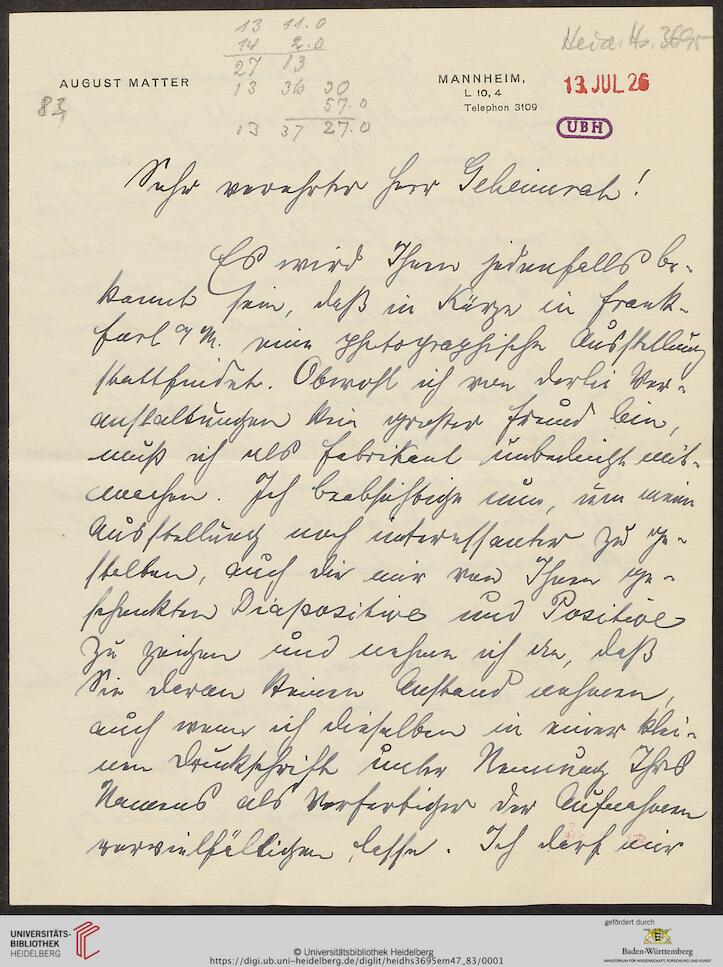 13 11.0
14 2.0
27 13
13 36 30
57.0
13 37 27.0
Heid. Hs. 3695
83,
AUGUST MATTER
MANNHEIM,
L 10, 4
Telephon 3109
13. JUL 26
UBH
Sehr verehrter Herr Geheimrat!
Es wird Ihnen jedenfalls be-
kannt sein, daß in Kürze in Frank-
furt a/M. eine photographische Ausstellung
stattfindet. Obwohl ich von derlei Ver-
anstaltungen kein großer Freund bin,
muß ich als Fabrikant unbedingt mit-
machen. Ich beabsichtige nun, um meine
Ausstellung noch interessanter zu ge-
stalten, auch die mir von Ihnen ge-
schenkten Diapositive und Positive
zu zeigen und nehme ich an, daß
Sie daran keinen Anstand nehmen,
auch wenn ich dieselben in einer klei-
nen Druckschrift unter Nennung Ihres
Namens als Verfertiger der Aufnahmen
vervielfältigen lasse. Ich darf mir
UNIVERSITÄTS-
BIBLIOTHEK
HEIDELBERG
© Universitätsbibliothek Heidelberg
https://digi.ub.uni-heidelberg.de/diglit/heidhs3695em47_83/0001
gefördert durch
Baden-Württemberg
MINISTERIUM FÜR WISSENSCHAFT, FORSCHUNG UND KUNST